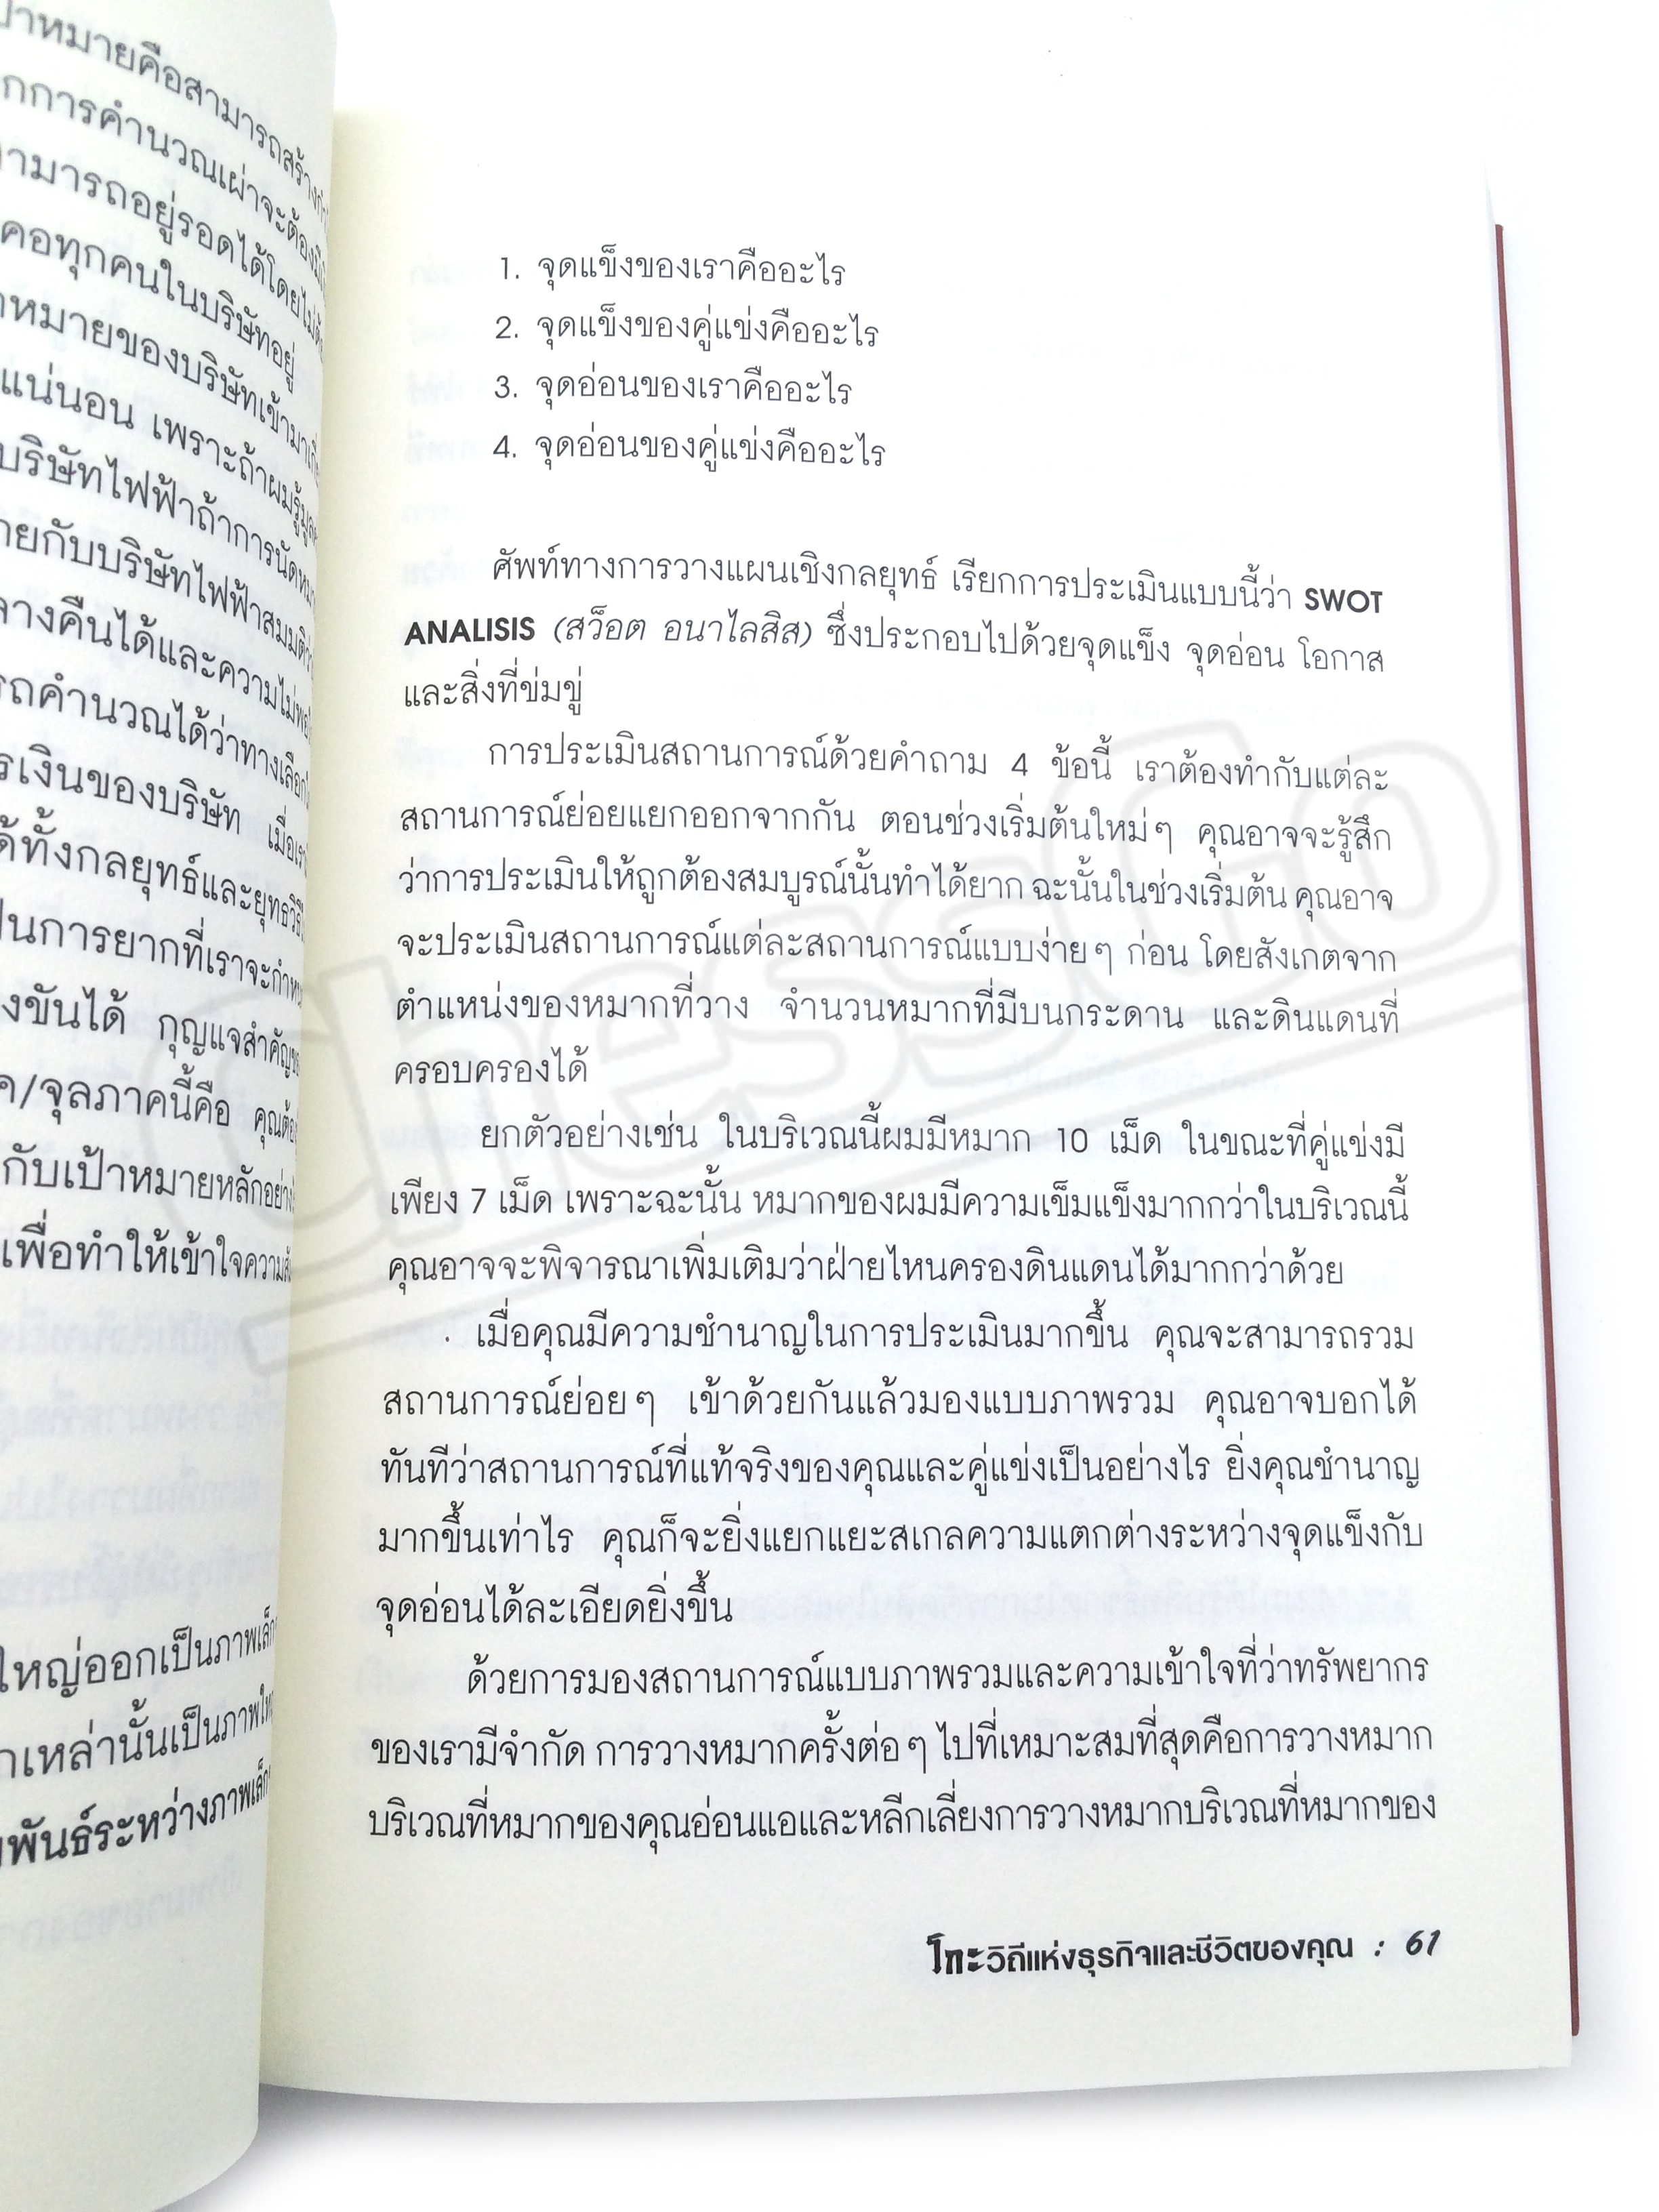 าหมายคือสามารถสร้าง
กการคำนวณเผ่าจะต้องมี
ามารถอยู่รอดได้โดยไม่
คอทุกคนในบริษัทอยู่
หมายของบริษัทเข้ามา
แน่นอน เพราะถ้าผมรู้
บริษัทไฟฟ้าถ้าการนัด
ายกับบริษัทไฟฟ้าสมมติ
ลางคืนได้และความไม่
รถคำนวณได้ว่าทางเลือก
รเงินของบริษัท เมื่อ
ด้ทั้งกลยุทธ์และยุทธวิธี
ป็นการยากที่เราจะกำ
งขันได้ กุญแจสำคัญ
ค/จุลภาคนี้คือ คุณต้อ
กับเป้าหมายหลักอย่าง
เพื่อทำให้เข้าใจความ
ใหญ่ออกเป็นภาพเล็ก
กเหล่านั้นเป็นภาพให
พันธ์ระหว่างภาพเล็ก
1. จุดแข็งของเราคืออะไร
2. จุดแข็งของคู่แข่งคืออะไร
3. จุดอ่อนของเราคืออะไร
4. จุดอ่อนของคู่แข่งคืออะไร
ศัพท์ทางการวางแผนเชิงกลยุทธ์ เรียกการประเมินแบบนี้ว่า SWOT
ANALISIS (สว็อต อนาไลสิส) ซึ่งประกอบไปด้วยจุดแข็ง จุดอ่อน โอกาส
และสิ่งที่ข่มขู่
การประเมินสถานการณ์ด้วยคำถาม 4 ข้อนี้ เราต้องทำกับแต่ละ
สถานการณ์ย่อยแยกออกจากกัน ตอนช่วงเริ่มต้นใหม่ๆ คุณอาจจะรู้สึก
ว่าการประเมินให้ถูกต้องสมบูรณ์นั้นทำได้ยาก ฉะนั้นในช่วงเริ่มต้น คุณอาจ
จะประเมินสถานการณ์แต่ละสถานการณ์แบบง่ายๆ ก่อน โดยสังเกตจาก
ตำแหน่งของหมากที่วาง จำนวนหมากที่มีบนกระดาน และดินแดนที่
ครอบครองได้
ยกตัวอย่างเช่น ในบริเวณนี้ผมมีหมาก 10 เม็ด ในขณะที่คู่แข่งมี
เพียง 7 เม็ด เพราะฉะนั้น หมากของผมมีความเข็มแข็งมากกว่าในบริเวณนี้
คุณอาจจะพิจารณาเพิ่มเติมว่าฝ่ายไหนครองดินแดนได้มากกว่าด้วย
เมื่อคุณมีความชำนาญในการประเมินมากขึ้น คุณจะสามารถรวม
สถานการณ์ย่อยๆ เข้าด้วยกันแล้วมองแบบภาพรวม คุณอาจบอกได้
ทันทีว่าสถานการณ์ที่แท้จริงของคุณและคู่แข่งเป็นอย่างไร ยิ่งคุณชำนาญ
มากขึ้นเท่าไร คุณก็จะยิ่งแยกแยะสเกลความแตกต่างระหว่างจุดแข็งกับ
จุดอ่อนได้ละเอียดยิ่งขึ้น
ด้วยการมองสถานการณ์แบบภาพรวมและความเข้าใจที่ว่าทรัพยากร
ของเรามีจำกัด การวางหมากครั้งต่อๆ ไปที่เหมาะสมที่สุดคือการวางหมาก
บริเวณที่หมากของคุณอ่อนแอและหลีกเลี่ยงการวางหมากบริเวณที่หมากของ
โกะวิถีแห่งธุรกิจและชีวิตของคุณ : 61
ChessGo